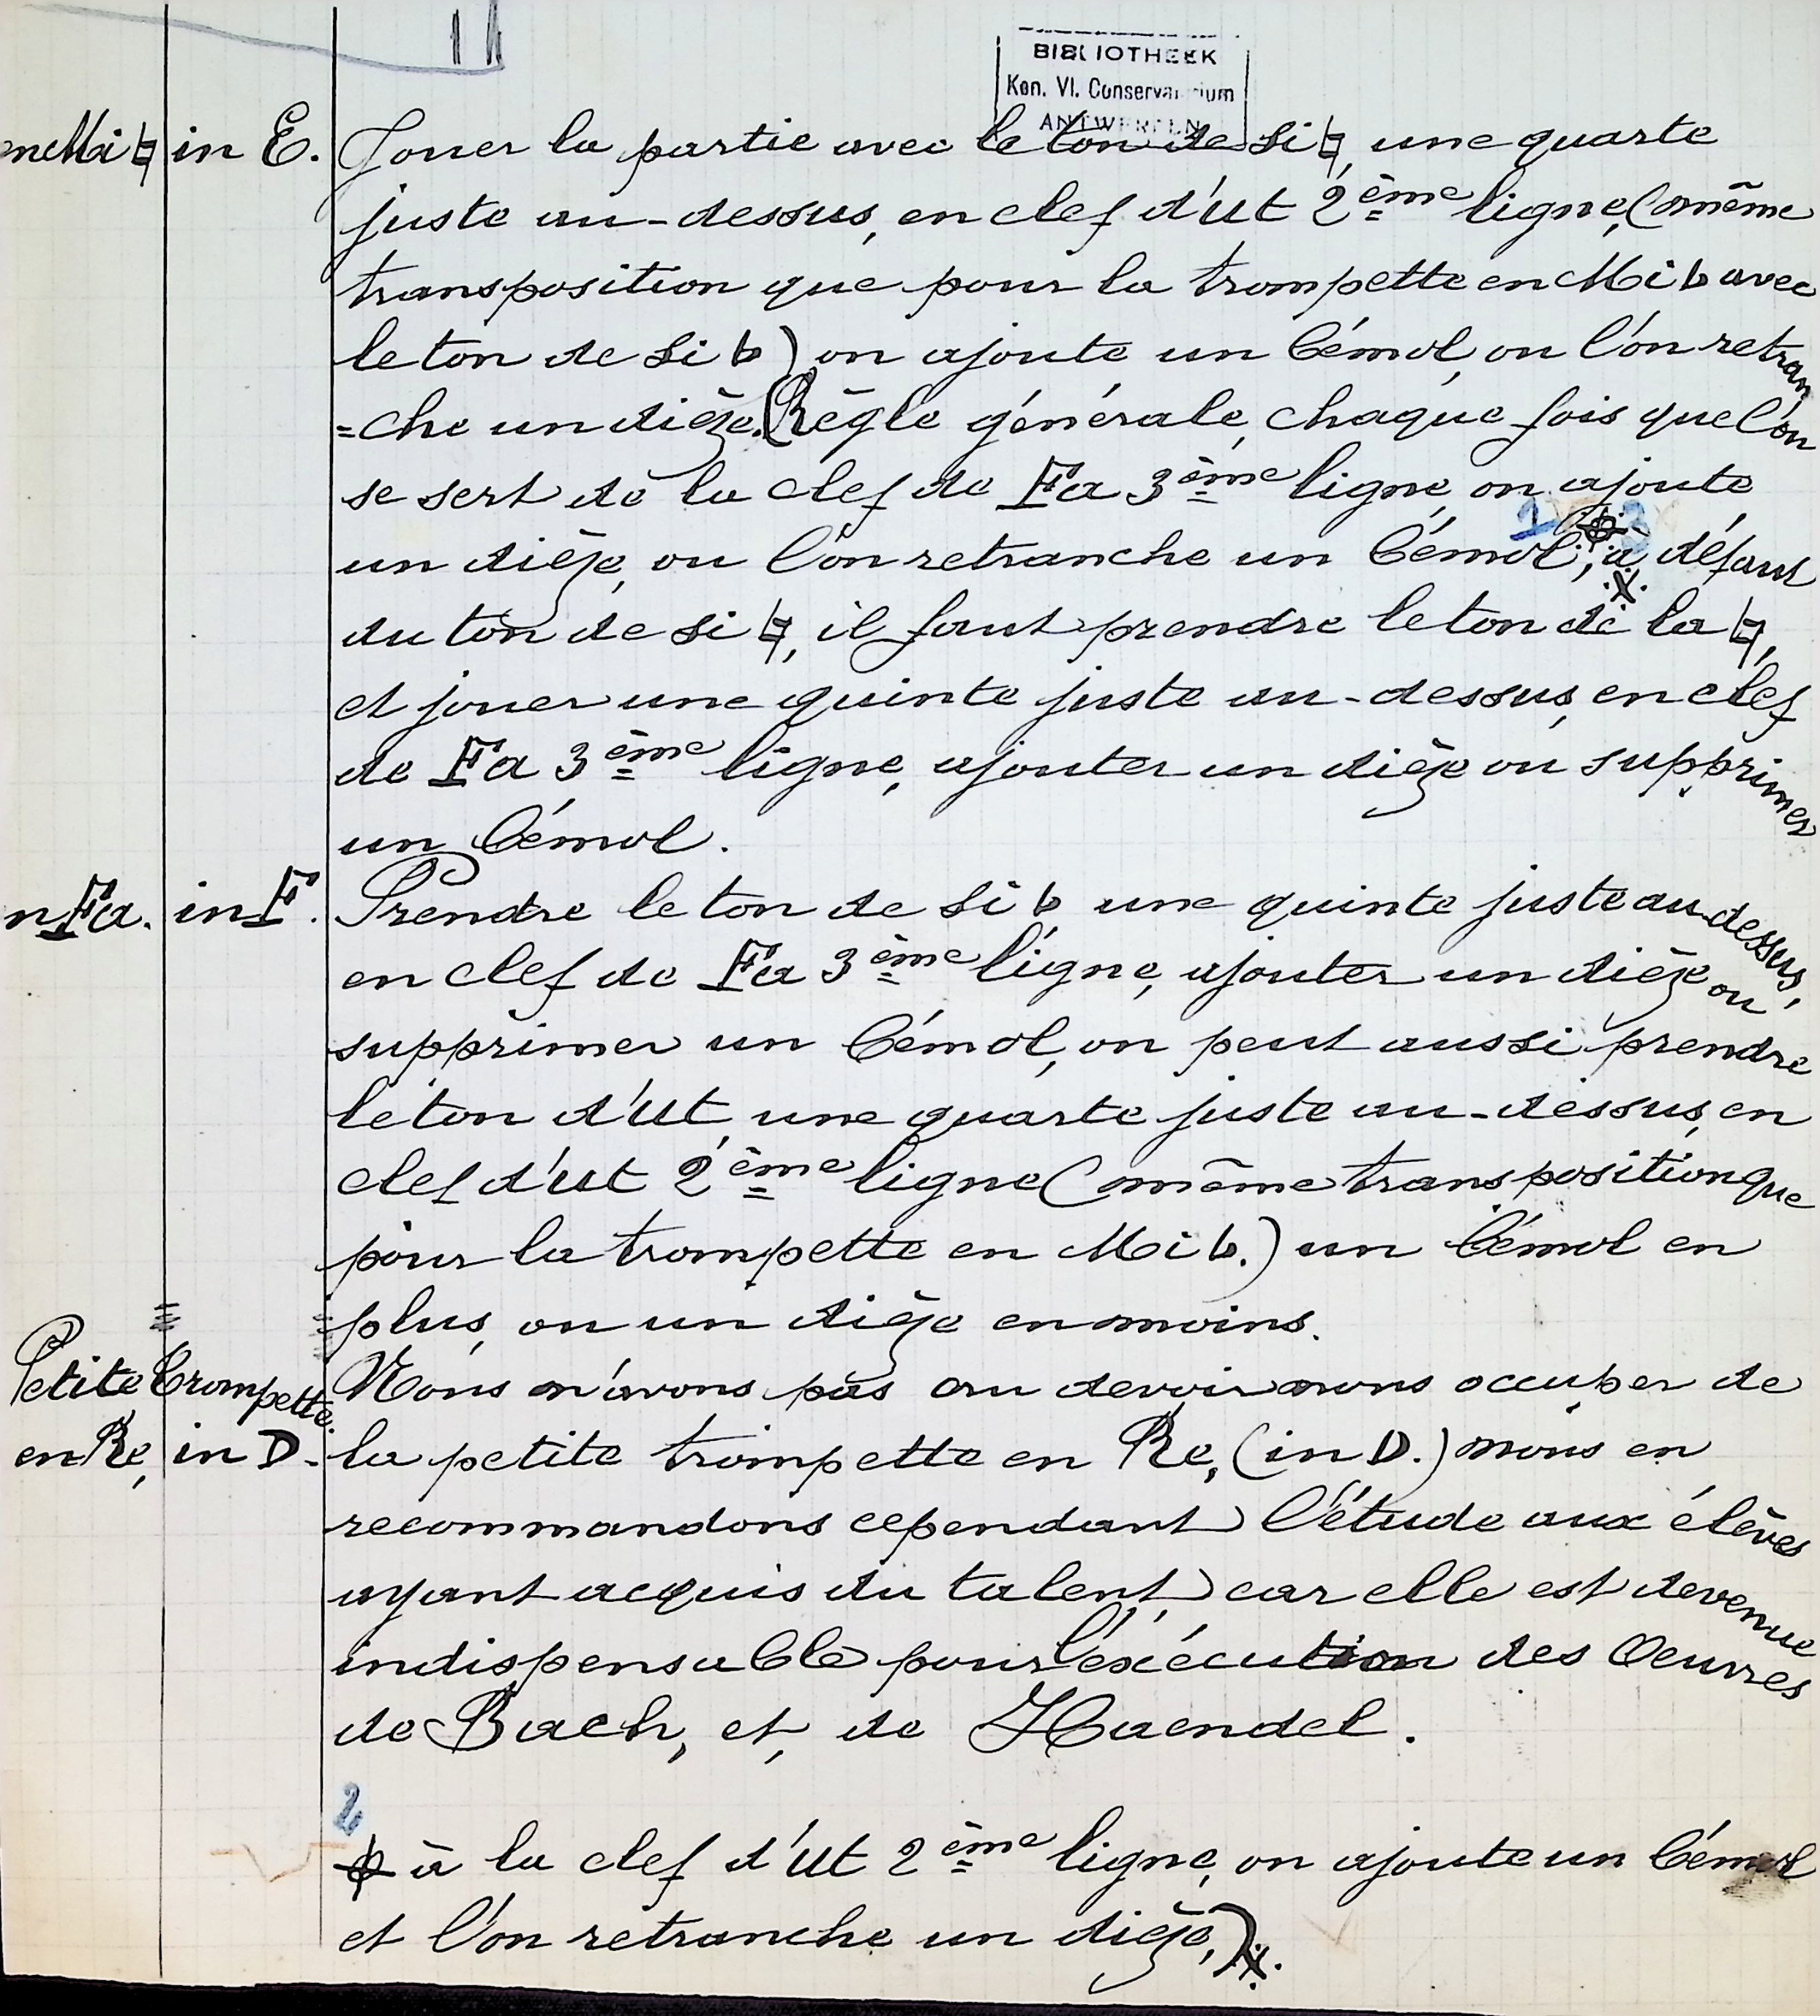 11
BIBLIOTHEEK
Kon. Vl. Conservatorium
ANTWERPEN
en Mi ♮ in E. Jouer la partie avec le ton de Si ♮, une quarte
juste au-dessus, en clef d'ut 2ème ligne, (même
transposition que pour la trompette en Mi b avec
le ton de Si b) on ajoute un bémol, ou l'on retran
=che un dièze. (Règle générale, chaque fois que l'on
se sert de la clef de Fa 3ème ligne, on ajoute
un dièze, ou l'on retranche un bémol, à défaut
du ton de si ♮, il faut prendre le ton de la ♮,
et jouer une quinte juste au-dessus, en clef
de Fa 3ème ligne, ajouter un dièze ou supprimer
un bémol.
n Fa. in F. Prendre le ton de Si b une quinte juste au-dessus,
en clef de Fa 3ème ligne, ajouter un dièze ou
supprimer un bémol, on peut aussi prendre
le ton d'ut, une quarte juste au-dessus, en
clef d'ut 2ème ligne (même transposition que
pour la trompette en Mi b.) un bémol en
plus, ou un dièze en moins.
Petite trompette Nous n'avons pas cru devoir nous occuper de
en Re, in D. la petite trompette en Re, (in D.) nous en
recommandons cependant l'étude aux élèves
ayant acquis du talent, car elle est devenue
indispensable pour l'éxécution des Oeuvres
de Bach, et de Haendel.
2
à la clef d'ut 2ème ligne, on ajoute un bémol
et l'on retranche un dièze,)